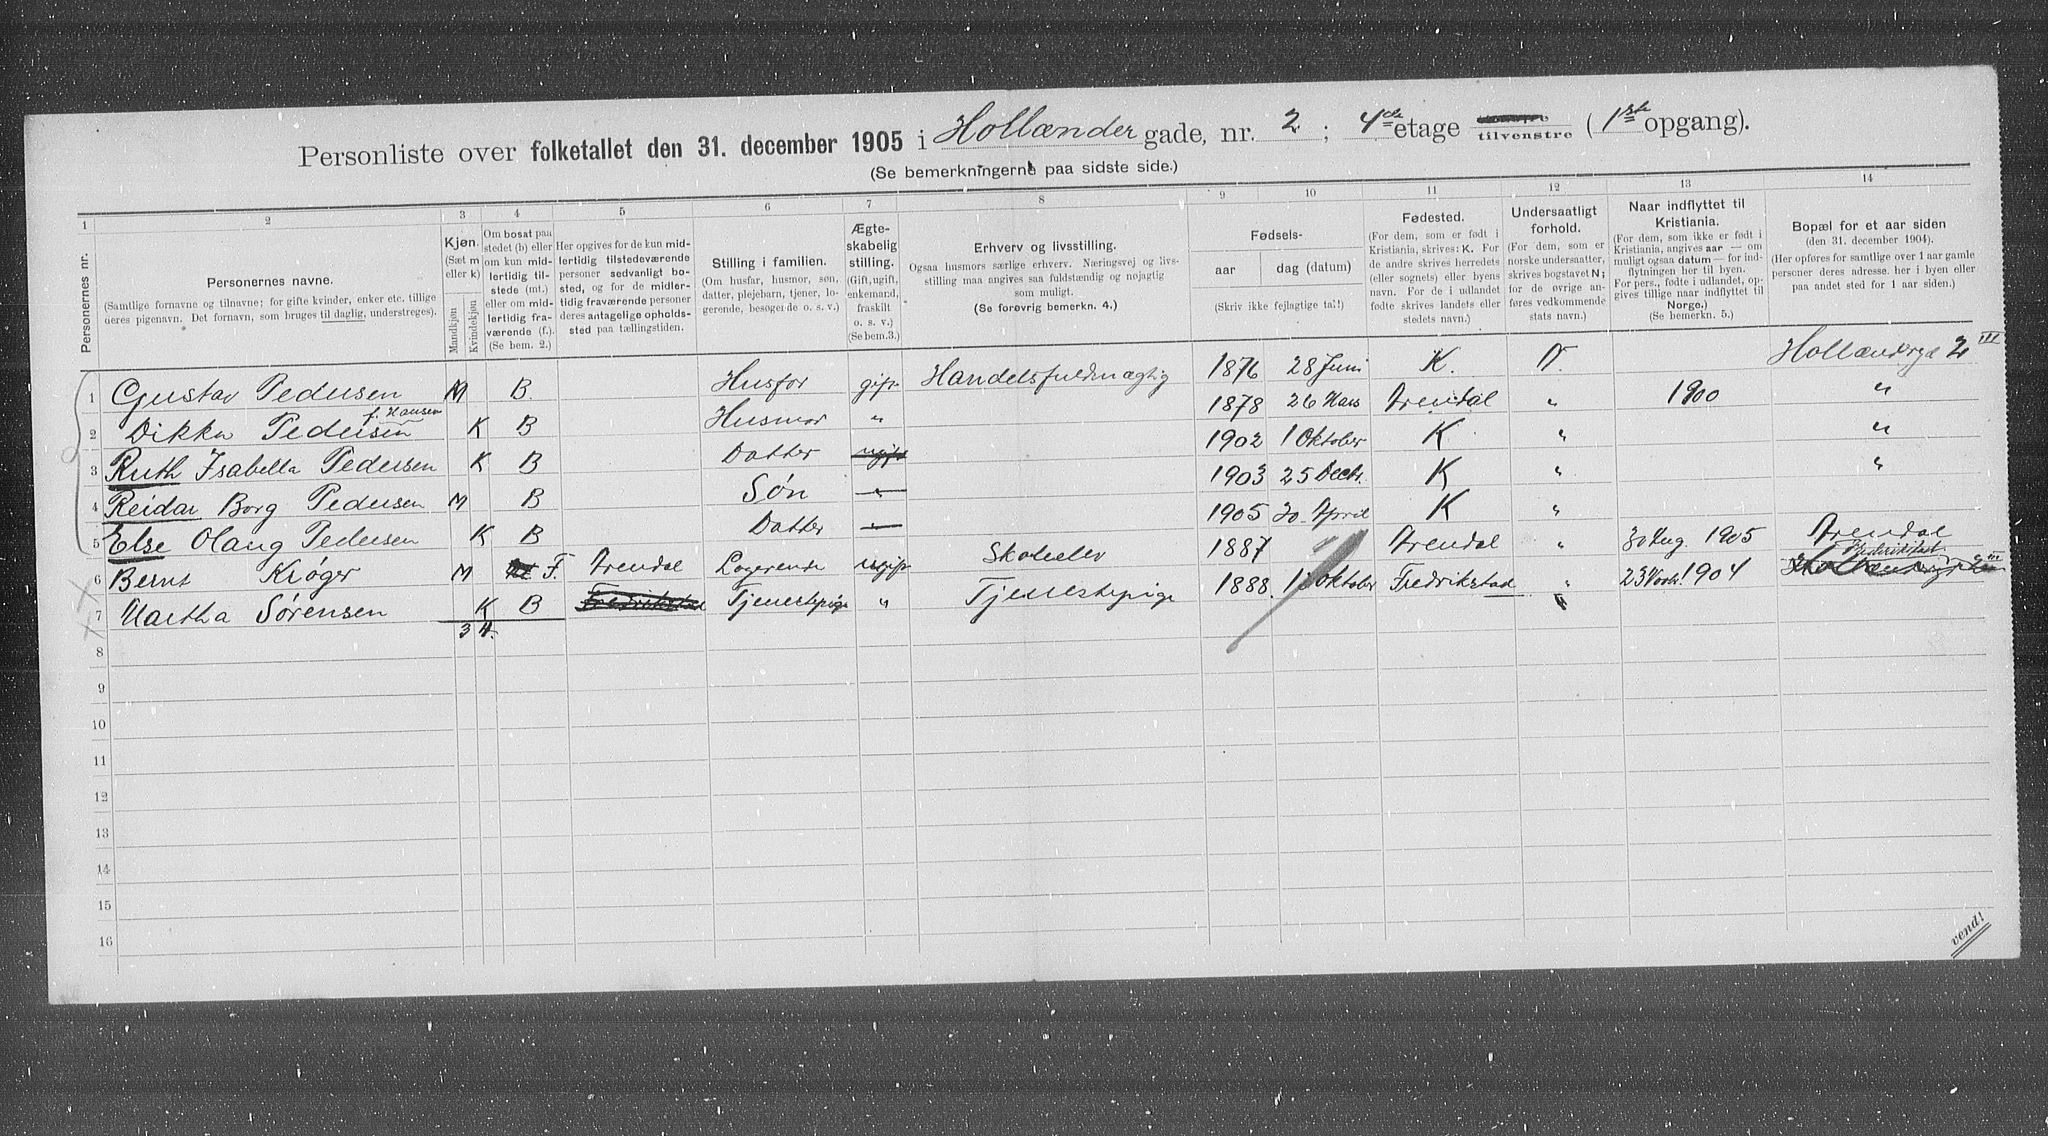 Personliste over folketallet den 31. december 1905 i Hollænder gade, nr. 2 ; 4de etage tilvenstre (1ste opgang).
(Se bemerkningerne paa sidste side.)
1 2 3 4 5 6 7 8 9 10 11 12 13 14
Personernes nr.
Personernes navne.
(Samtlige fornavne og tilnavne; for gifte kvinder, enker etc. tillige
deres pigenavn. Det fornavn, som bruges til daglig, understreges).
Kjøn.
(Sæt m
eller k)
Mandkjøn
Kvindekjøn
Om bosat paa
stedet (b) eller
om kun mid-
lertidig til-
stede (mt.)
eller om mid-
lertidig fra-
værende (f.).
(Se bem. 2.)
Her opgives for de kun mid-
lertidig tilstedeværende
personer sedvanligt bo-
sted, og for de midler-
tidig fraværende personer
deres antagelige opholds-
sted paa tællingstiden.
Stilling i familien.
(Om husfar, husmor, søn,
datter, plejebarn, tjener, lo-
gerende, besøgende o. s. v.)
Ægte-
skabelig
stilling.
(Gift, ugift,
enkemand,
fraskilt
o. s. v.)
(Se bem.3.)
Erhverv og livsstilling.
Ogsaa husmors særlige erhverv. Næringsvej og livs-
stilling maa angives saa fuldstændig og nøjagtig
som muligt.
(Se forøvrig bemerkn. 4.)
Fødsels-
aar dag (datum)
(Skriv ikke fejlagtige tal!)
Fødested.
(For dem, som er født i
Kristiania, skrives: K. For
de andre skrives herredets
(eller sognets) eller byens
navn. For de i udlandet
fødte skrives landets eller
stedets navn.)
Undersaatligt
forhold.
(For dem, som er
norske undersaatter,
skrives bogstavet N;
for de øvrige an-
føres vedkommende
stats navn.)
Naar indflyttet til
Kristiania.
(For dem, som ikke er født i
Kristiania, angives aar — om
muligt ogsaa datum — for ind-
flytningen her til byen.
For pers., fødte i udlandet, op-
gives tillige naar indflyttet til
Norge.)
(Se bemerkn. 5.)
Bopæl for et aar siden
(den 31. december 1904).
(Her opføres for samtlige over 1 aar gamle
personer deres adresse. her i byen eller
paa andet sted for 1 aar siden.)
1 Gustav Pedersen M B. Husfar gift Handelsfuldmægtig 1876 28 Juni K. N. Hollændergd 2 III
2 Dikka Pedersen f. Hansen K B Husmor " 1878 26 Mars Arendal " 1900 "
3 Ruth Isabella Pedersen K B Datter ugift 1902 1 Oktober K " "
4 Reidar Borg Pedersen M B Søn " 1903 25 Decbr. K " "
5 Else Olaug Pedersen K B Datter " 1905 30 April K "
6 Bernt Krøger M F. Arendal Logerende ugift Skoleelev 1887 Arendal " 30 Aug. 1905 Arendal
7 Martha Sørensen K B Fredrikstad Tjenestepige " Tjenestepige 1888. 1 Oktober Fredrikstad " 1904 Fredrikstad
3 4.
8
9
10
11
12
13
14
15
16
vend!